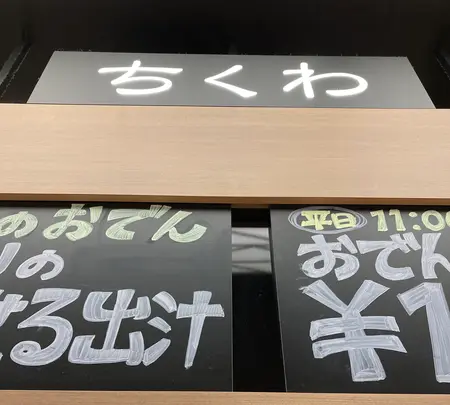 ちくわ
のおでん
リの
せる出汁
平日 11:00
おでん
¥1